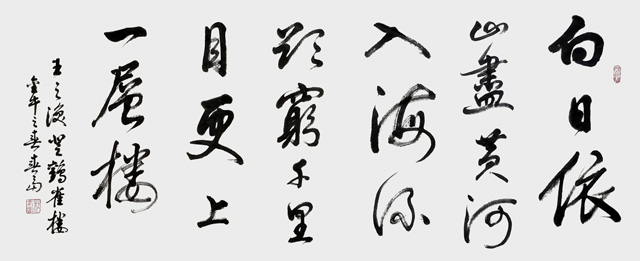 白日依
山盡黄河
入海流
欲窮千里
目更上
一層楼
王之渙登鶴雀楼
之春